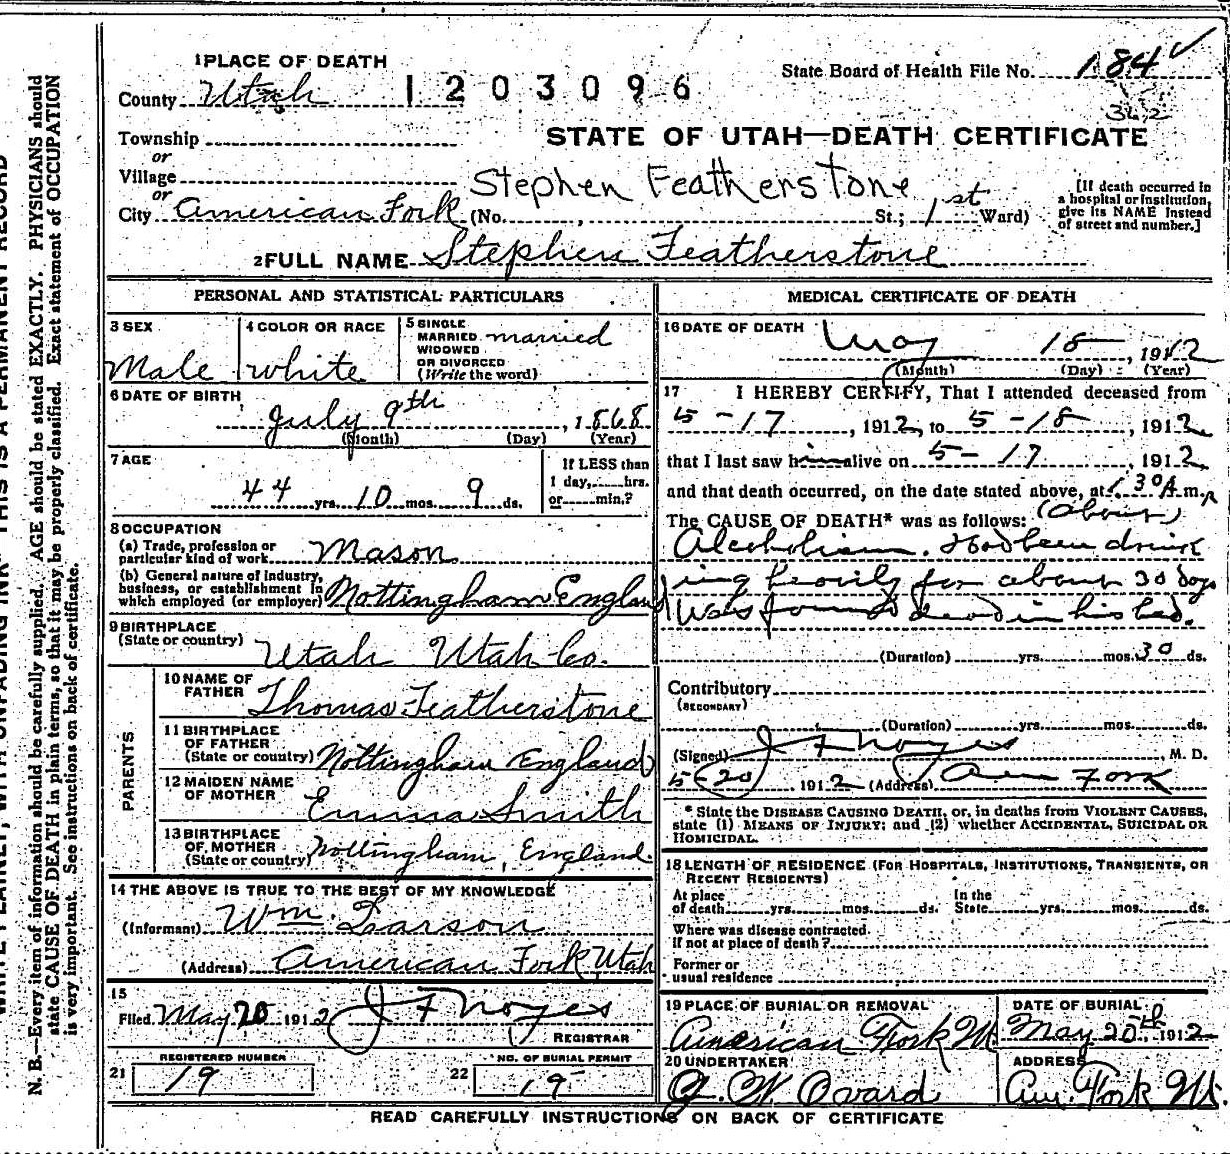 1 PLACE OF DEATH
State Board of Health File No. 184
County Utah 1203096
362
STATE OF UTAH—DEATH CERTIFICATE
Township
or
Village
or
Stephen Featherstone
City American Fork (No. , St.; 1st Ward)
[If death occurred in a hospital or institution, give its NAME instead of street and number.]
2 FULL NAME Stephen Featherstone
PERSONAL AND STATISTICAL PARTICULARS
3 SEX Male
4 COLOR OR RACE white
5 SINGLE MARRIED WIDOWED OR DIVORCED (Write the word) married
6 DATE OF BIRTH July 9th, 1868
(Month) (Day) (Year)
7 AGE 44 yrs. 10 mos. 9 ds.
If LESS than 1 day, hrs. or min.?
8 OCCUPATION
(a) Trade, profession or particular kind of work Mason
(b) General nature of Industry, business, or establishment in which employed (or employer) Nottingham England
9 BIRTHPLACE
(State or country) Utah Utah Co.
PARENTS
10 NAME OF FATHER Thomas Featherstone
11 BIRTHPLACE OF FATHER (State or country) Nottingham England
12 MAIDEN NAME OF MOTHER Emma Smith
13 BIRTHPLACE OF MOTHER (State or country) Nottingham, England.
14 THE ABOVE IS TRUE TO THE BEST OF MY KNOWLEDGE
(Informant) Wm. Larson
(Address) American Fork Utah
15
Filed May 20 1912 J F Noyes
REGISTRAR
REGISTERED NUMBER
21 19
NO. OF BURIAL PERMIT
22 19
MEDICAL CERTIFICATE OF DEATH
16 DATE OF DEATH May 18, 1912
(Month) (Day) (Year)
17 I HEREBY CERTIFY, That I attended deceased from
5-17, 1912, to 5-18, 1912
that I last saw him alive on 5-17, 1912
and that death occurred, on the date stated above, at 1 30 A m.
(about)
The CAUSE OF DEATH* was as follows:
Alcoholism. Had been drink
ing heavily for about 30 days
Was found dead in his bed.
(Duration) yrs. mos. 30 ds.
Contributory
(SECONDARY)
(Duration) yrs. mos. ds.
(Signed) J F Noyes M. D.
5-20, 1912 (Address) Am Fork
* State the DISEASE CAUSING DEATH, or, in deaths from VIOLENT CAUSES, state (1) MEANS OF INJURY; and (2) whether ACCIDENTAL, SUICIDAL OR HOMICIDAL.
18 LENGTH OF RESIDENCE (FOR HOSPITALS, INSTITUTIONS, TRANSIENTS, OR RECENT RESIDENTS)
At place of death yrs. mos. ds. In the State yrs. mos. ds.
Where was disease contracted, if not at place of death?
Former or usual residence
19 PLACE OF BURIAL OR REMOVAL American Fork Ut.
DATE OF BURIAL May 20th, 1912
20 UNDERTAKER W. Ovard
ADDRESS Am. Fork Ut.
READ CAREFULLY INSTRUCTIONS ON BACK OF CERTIFICATE
WRITE PLAINLY, WITH UNFADING INK THIS IS A PERMANENT RECORD
N. B.—Every item of information should be carefully supplied. AGE should be stated EXACTLY. PHYSICIANS should
state CAUSE OF DEATH in plain terms, so that it may be properly classified. Exact statement of OCCUPATION
is very important. See instructions on back of certificate.